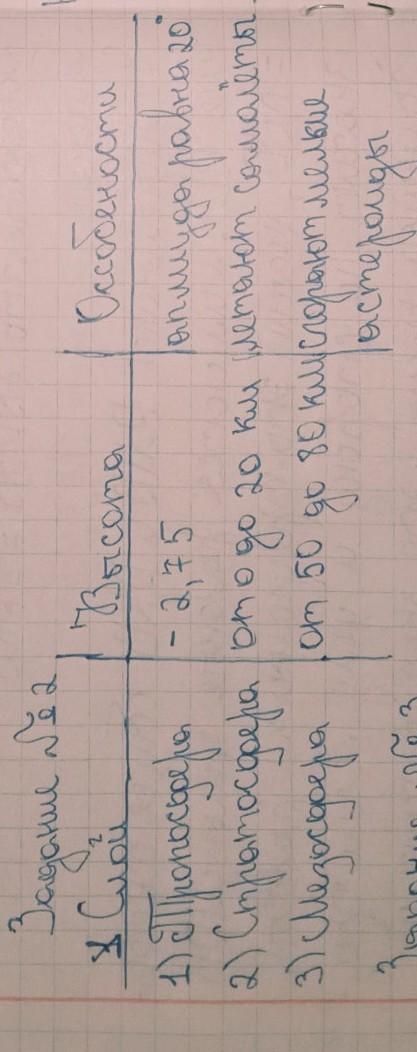 Задание №2
Слой Высота Особености
1) Тропосфера - 2,75 амплитуда равна 20°
2) Стратосфера от 0 до 20 км летают самолёты
3) Мезосфера от 50 до 80 км сгорают мелкие
астероиды
Задание №3